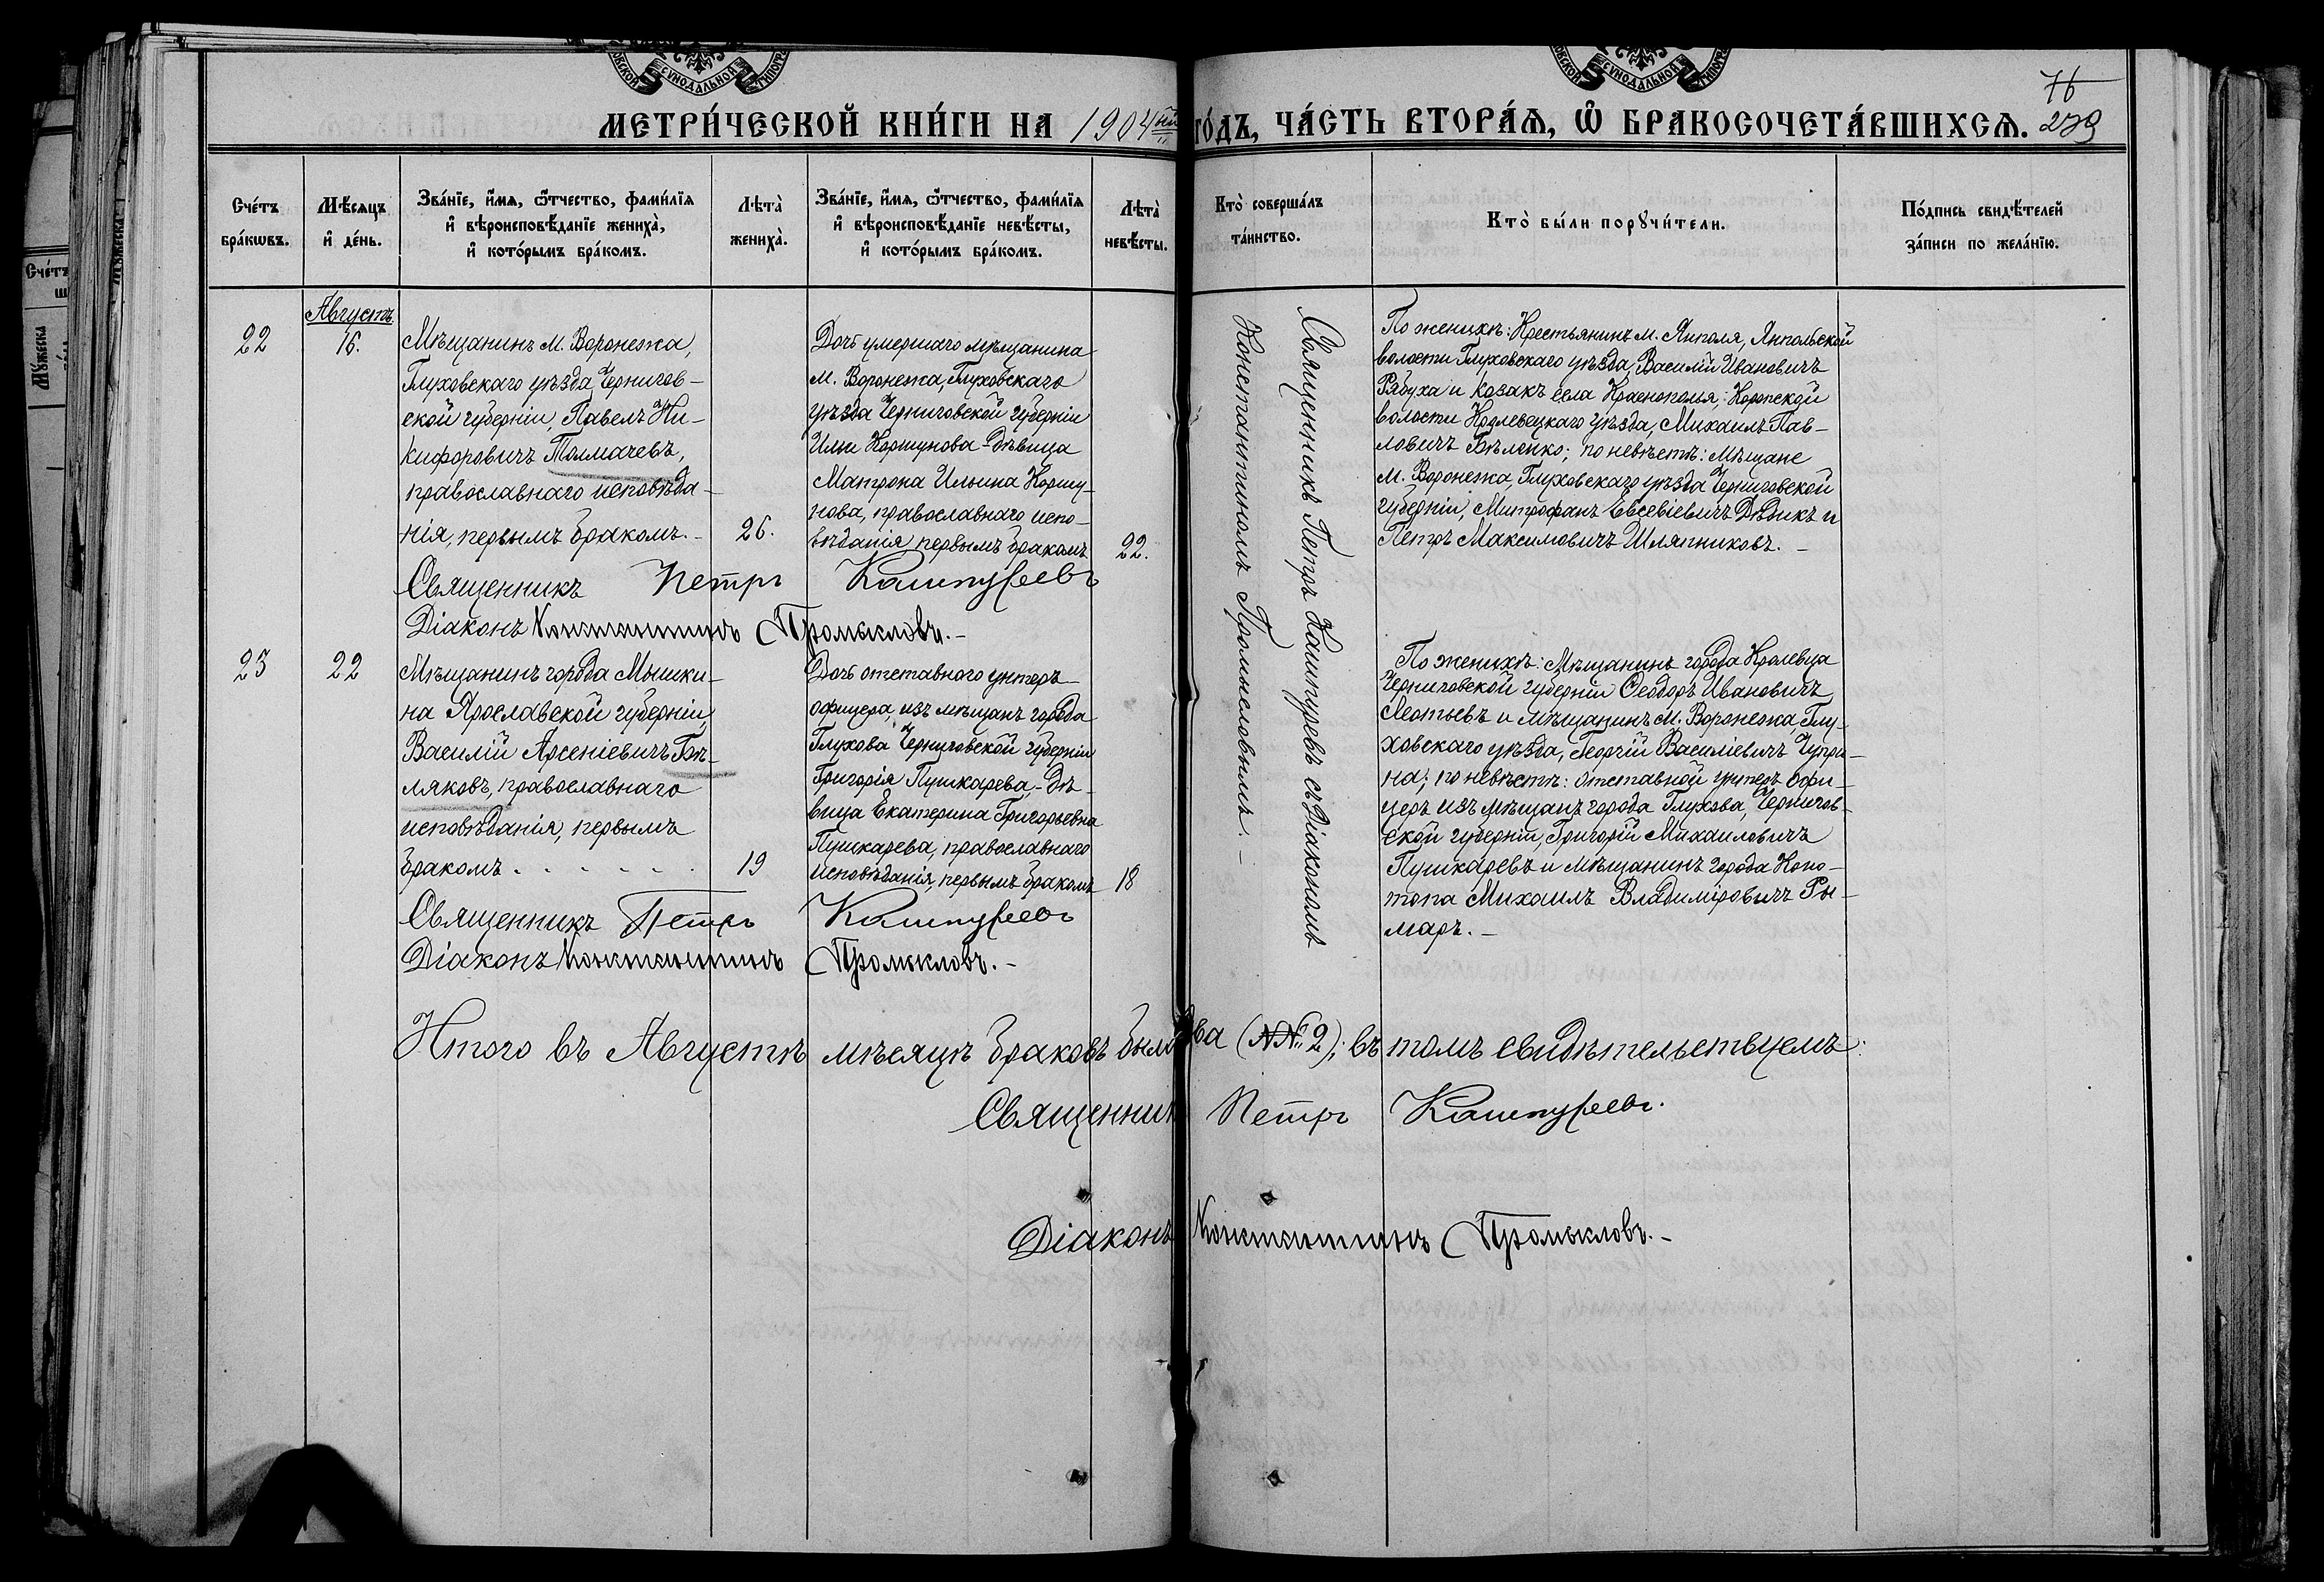 МЕТРИ́ЧЕСКОЙ КНИ́ГИ НА 1904ый ГО́ДЪ, ЧА́СТЬ ВТОРА́Я, Ѡ БРАКОСОЧЕТА́ВШИХСЯ.
76
239
Сче́тъ бра́кѡвъ.
Мѣ́сяцъ и де́нь.
Зва́нїе, и́мя, ѻ́тчество, фами́лїя
и вѣроисповѣ́данїе жениха̀,
и кото́рымъ бра́комъ.
Лѣта̀ жениха̀.
Зва́нїе, и́мя, ѻ́тчество, фами́лїя
и вѣроисповѣ́данїе невѣ́сты,
и кото́рымъ бра́комъ.
Лѣта̀ невѣ́сты.
Кто̀ соверша́лъ
та́инство.
Кто̀ бы́ли порꙋчи́тели.
По́дпись свидѣ́телей
за́писи по жела́нїю.
Августъ
22
16.
Мѣщанинъ м. Воронежа,
Глуховскаго уѣзда, Чернигов-
ской губерніи, Павелъ Ни-
кифоровичъ Толмачевъ,
православнаго исповѣда-
нія, первымъ бракомъ.-
26.
Дочь умершаго мѣщанина
м. Воронежа, Глуховскаго
уѣзда Черниговской губерніи
Иліи Коршунова - дѣвица
Матрона Ильина Коршу-
нова, православнаго испо-
вѣданія, первымъ бракомъ
22.
Священникъ Петръ Кашпуреевъ с діакономъ
Константиномъ Промысловымъ. -
По женихѣ: Крестьянинъ м. Янполя, Янпольской
волости Глуховскаго уѣзда, Василій Ивановичъ
Рябуха и козакъ села Краснополья, Коропской
волости Кролевецкаго уѣзда, Михаилъ Пав-
ловичъ Бѣленко; по невѣстѣ: мѣщане
м. Воронежа, Глуховскаго уѣзда Черниговской
губерніи, Митрофанъ Евсевіевичъ Дѣдикъ и
Петръ Максимовичъ Шляпниковъ. -
Священникъ Петръ Кашпуреевъ
Діаконъ Константинъ Промысловъ. -
23
22
Мѣщанинъ города Мышки-
на Ярославской губерніи,
Василій Арсеніевичъ Бѣ-
ляковъ, православнаго
исповѣданія, первымъ
бракомъ . . . . . . .
19
Дочь отставного унтеръ-
офицера, изъ мѣщанъ города
Глухова Черниговской губерніи
Григорія Пушкарева, - дѣ-
вица Екатерина Григорьевна
Пушкарева, православнаго
исповѣданія, первымъ бракомъ
18
По женихѣ: Мѣщанинъ города Кролевца
Черниговской губерніи Ѳеодоръ Ивановичъ
Леотьевъ и мѣщанинъ м. Воронежа, Глу-
ховскаго уѣзда, Георгій Василіевичъ Чупри-
на; по невѣстѣ: отставной унтеръ офи-
церъ изъ мѣщанъ города Глухова, Чернигов-
ской губерніи, Григорій Михаиловичъ
Пушкаревъ и мѣщанинъ города Коно-
топа Михаилъ Владиміровичъ Ры-
маръ. -
Священникъ Петръ Кашпуреевъ
Діаконъ Константинъ Промысловъ. -
Итого въ Августѣ мѣсяцѣ браковъ было два (№№ 2); въ томъ свидѣтельствуемъ:
Священникъ Петръ Кашпуреевъ.
Діаконъ Константинъ Промысловъ. -